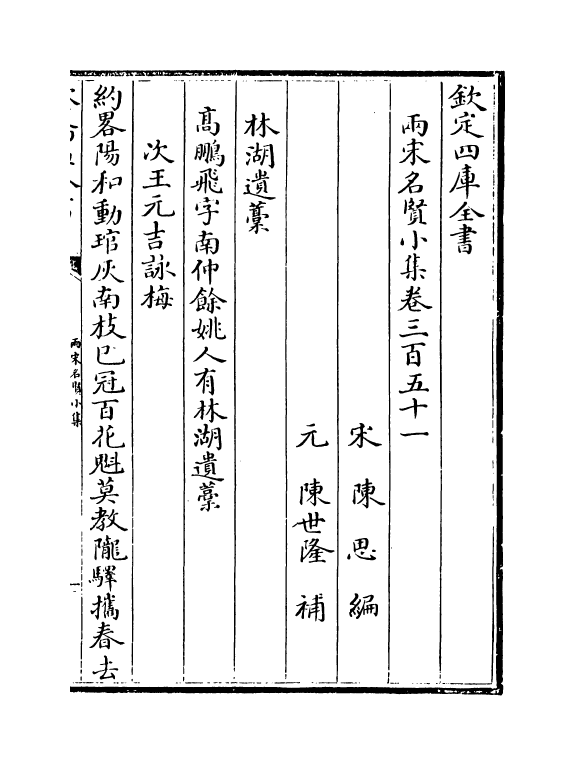 欽定四庫全書
兩宋名賢小集卷三百五十一
宋 陳思 編
元 陳世隆 補
林湖遺藁
高鵬飛字南仲餘姚人有林湖遺藁
次王元吉詠梅
約畧陽和動琯灰南枝已冠百花魁莫教隴驛攜春去
兩宋名賢小集
一